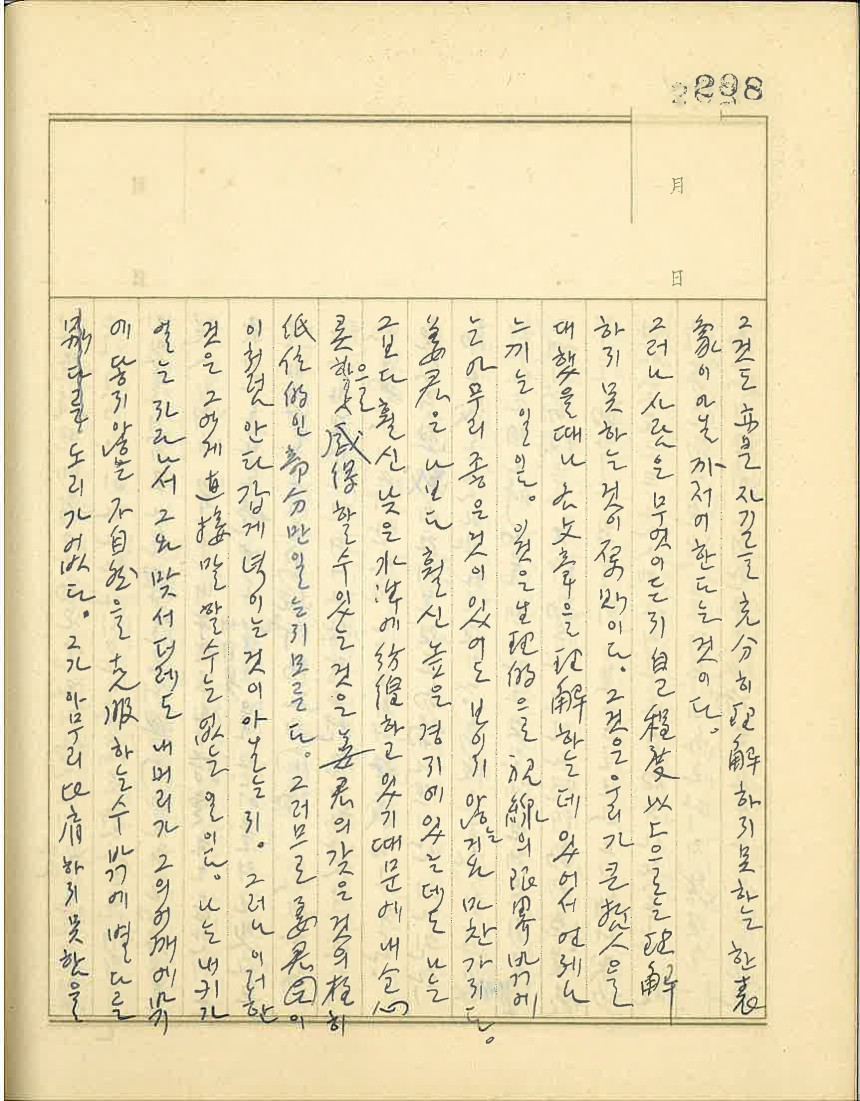 298
月
日
그것도 亦是 자기를 充分히 理解하지 못하는 한 表
象이 아닐까 저어한다는 것이다.
그러나 사람은 무엇이든지 自己 程度 以上으로는 理解
하지 못하는 것이 原則이다. 그것은 우리가 큰 哲人을
대했을 때나 名文章을 理解하는데 있어서 언제나
느끼는 일일. 이것은 生理的으로 視線의 限界 밖에
는 아무리 좋은 것이 있어도 보이지 않는 거와 마찬가지다.
姜君은 나보다 훨신 높은 경지에 있는데도 나는
그보다 훨신 낮은 水準에 彷徨하고 있기 때문에 내 全心
으로 感得할 수 있는 것은 姜君의 갖은 것의 極히
低位的인 部分만일는지 모른다. 그러므로 姜君은 이
이처럼 안타깝게 녁이는 것이 아닐는지. 그러나 이러한
것은 그에게 直接 말할 수는 없는 일이다. 나는 내 키가
얼는 자라나서 그와 맞서더래도 내 머리가 그의 어깨에 밖
에 닿지 않는 不自然을 克服하는 수밖에 별다른
도리가 없다. 그가 아무리 比肩하지 못함을